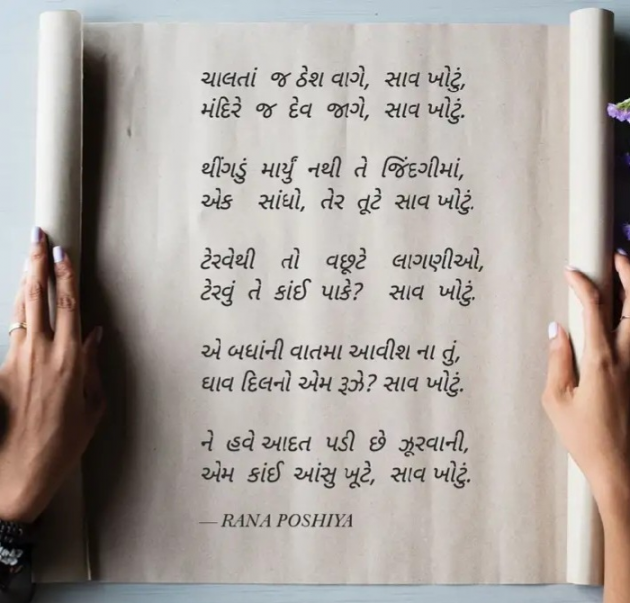 ચાલતાં જ ઠેશ વાગે, સાવ ખોટું,
મંદિરે જ દેવ જાગે, સાવ ખોટું.
થીંગડું માર્યું નથી તે જિંદગીમાં,
એક સાંધો, તેર તૂટે સાવ ખોટું.
ટેરવેથી તો વછૂટે લાગણીઓ,
ટેરવું તે કાંઈ પાકે? સાવ ખોટું.
એ બધાંની વાતમા આવીશ ના તું,
ઘાવ દિલનો એમ રૂઝે? સાવ ખોટું.
ને હવે આદત પડી છે ઝૂરવાની,
એમ કાંઈ આંસુ ખૂટે, સાવ ખોટું.
— RANA POSHIYA